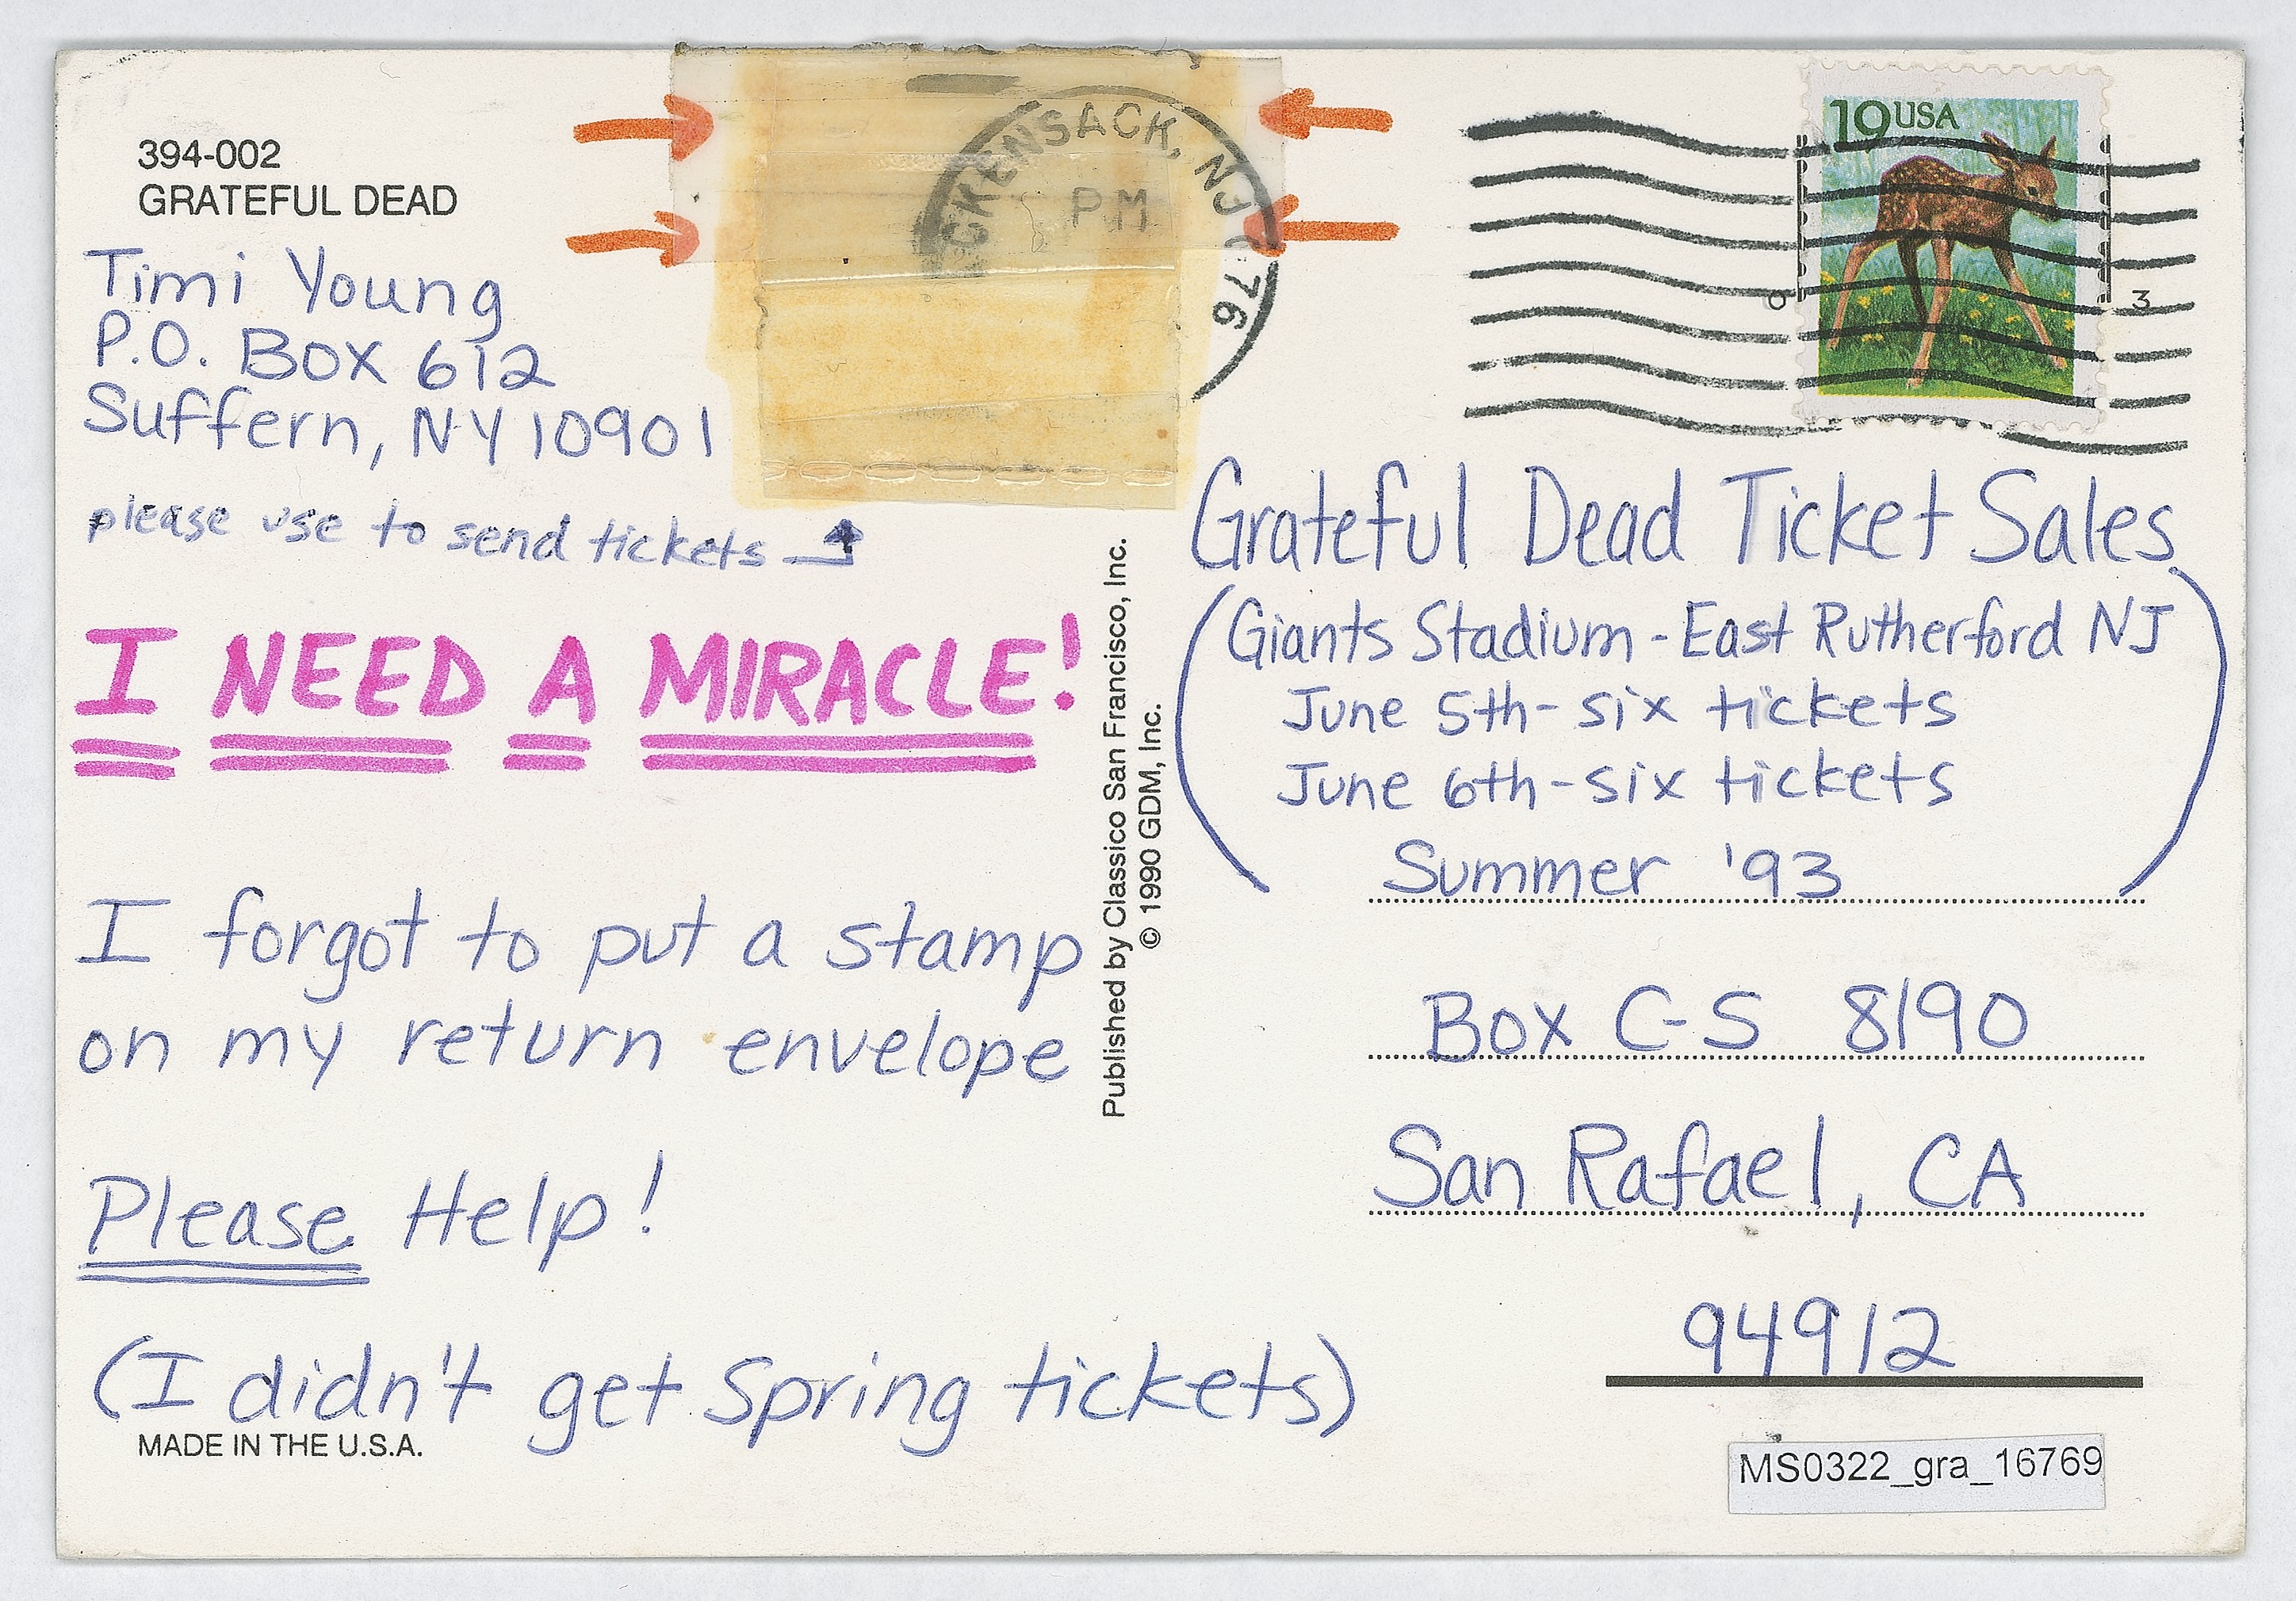 394-002
GRATEFUL DEAD
Timi Young
P.O. Box 612
Suffern, NY 10901
please use to send tickets
I NEED A MIRACLE!
I forgot to put a stamp
on my return envelope
Please Help!
(I didn't get Spring tickets)
MADE IN THE U.S.A.
Published by Classico San Francisco, Inc.
© 1990 GDM, Inc.
CKENSACK, NJ 076
PM
19 USA
0 3
Grateful Dead Ticket Sales
(Giants Stadium - East Rutherford NJ
June 5th - six tickets
June 6th - six tickets
Summer '93)
Box C-S 8190
San Rafael, CA
94912
MS0322_gra_16769